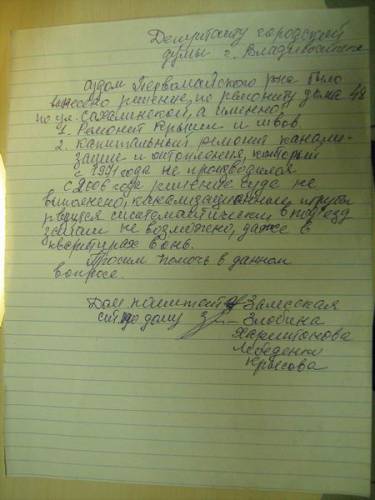 Депутату городской
думы г. Владивостока
судом Первомайского р-на было
вынесено решение, по ремонту дома 48
по ул. Сахалинской, а именно:
1. Ремонт крыши и швов.
2. Капитальный ремонт канали-
зации и отопления, который
с 1971 года не производился
С 2006 года решение суда не
выполнено, канализационные трубы
рвутся систематически в подъезд
зайти не возможно, даже в
квартирах вонь.
Просим помочь в данном
вопросе.
Дом комитет Залесская
по дому Злобина
Харитонова
Лебеденко
Красова